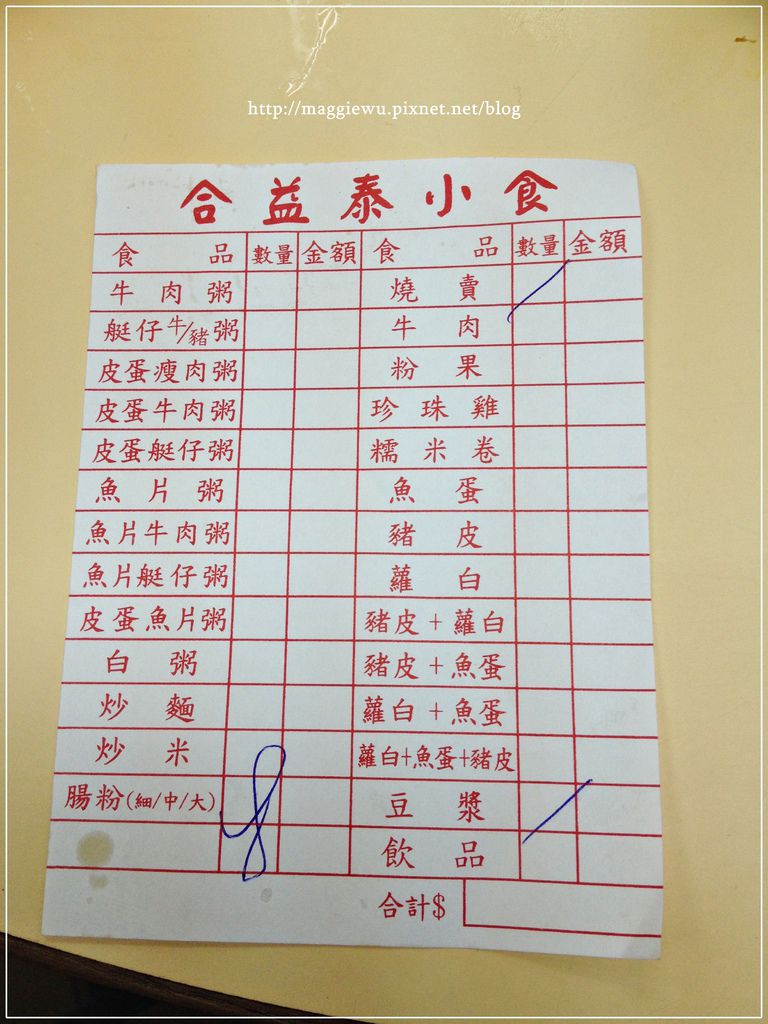 http://maggiewu.pixnet.net/blog
合益泰小食
食品 數量 金額 食品 數量 金額
牛肉粥 燒賣
艇仔牛/豬粥 牛肉
皮蛋瘦肉粥 粉果
皮蛋牛肉粥 珍珠雞
皮蛋艇仔粥 糯米卷
魚片粥 魚蛋
魚片牛肉粥 豬皮
魚片艇仔粥 蘿白
皮蛋魚片粥 豬皮+蘿白
白粥 豬皮+魚蛋
炒麵 蘿白+魚蛋
炒米 蘿白+魚蛋+豬皮
腸粉(細/中/大) 豆漿
飲品
合計$